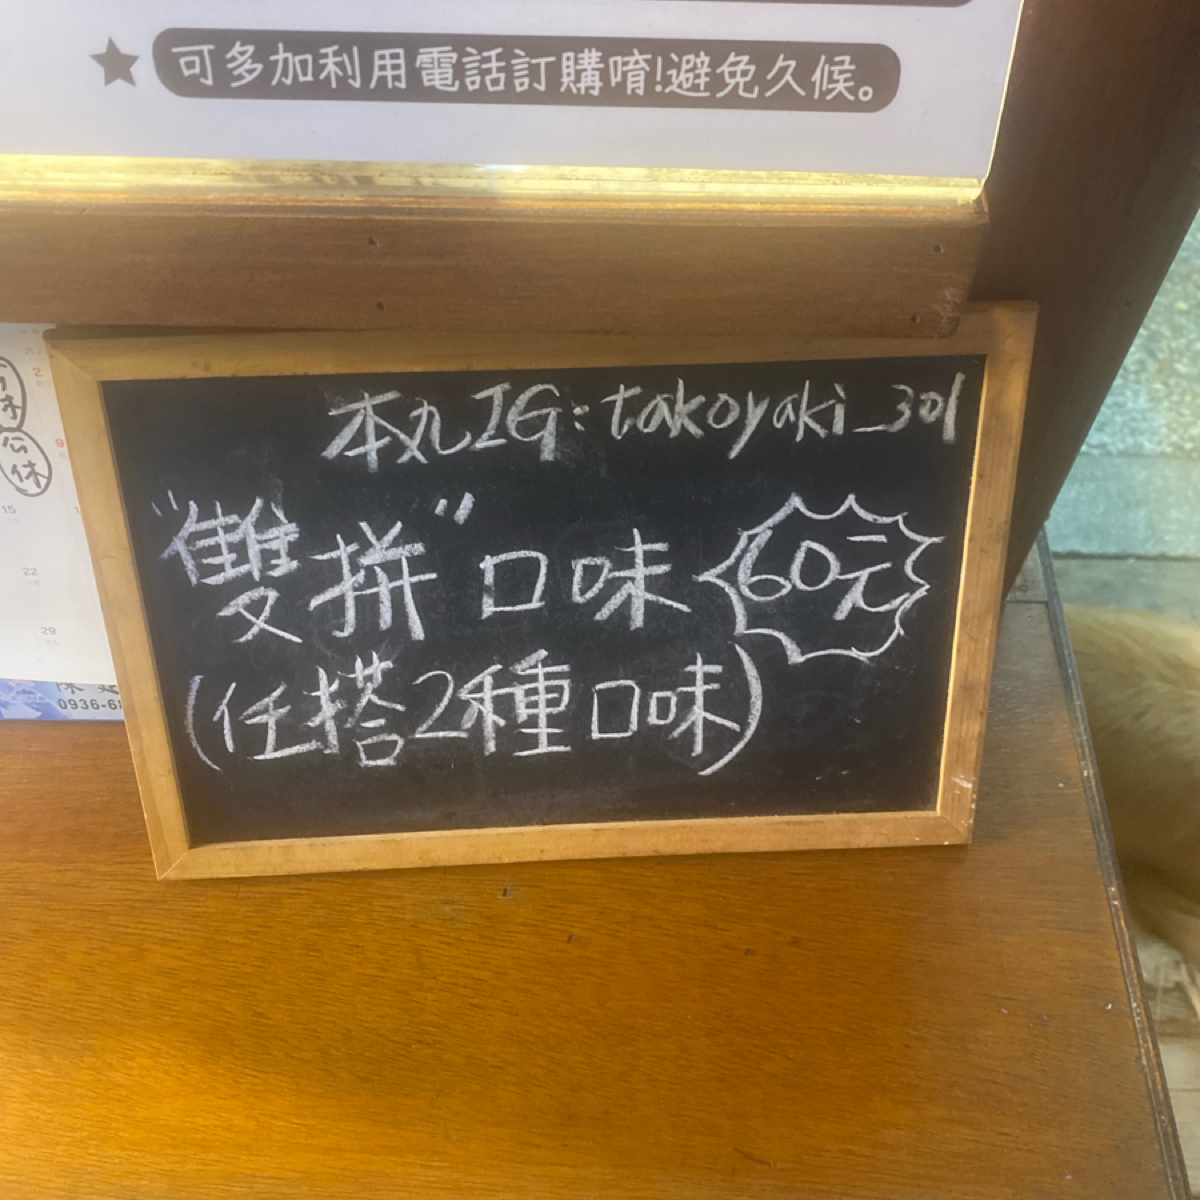 ★ 可多加利用電話訂購唷!避免久候。
本丸IG:takoyaki_301
"雙拼"口味 60元
(任搭2種口味)
公休
2
9
15
22
29
0936-6